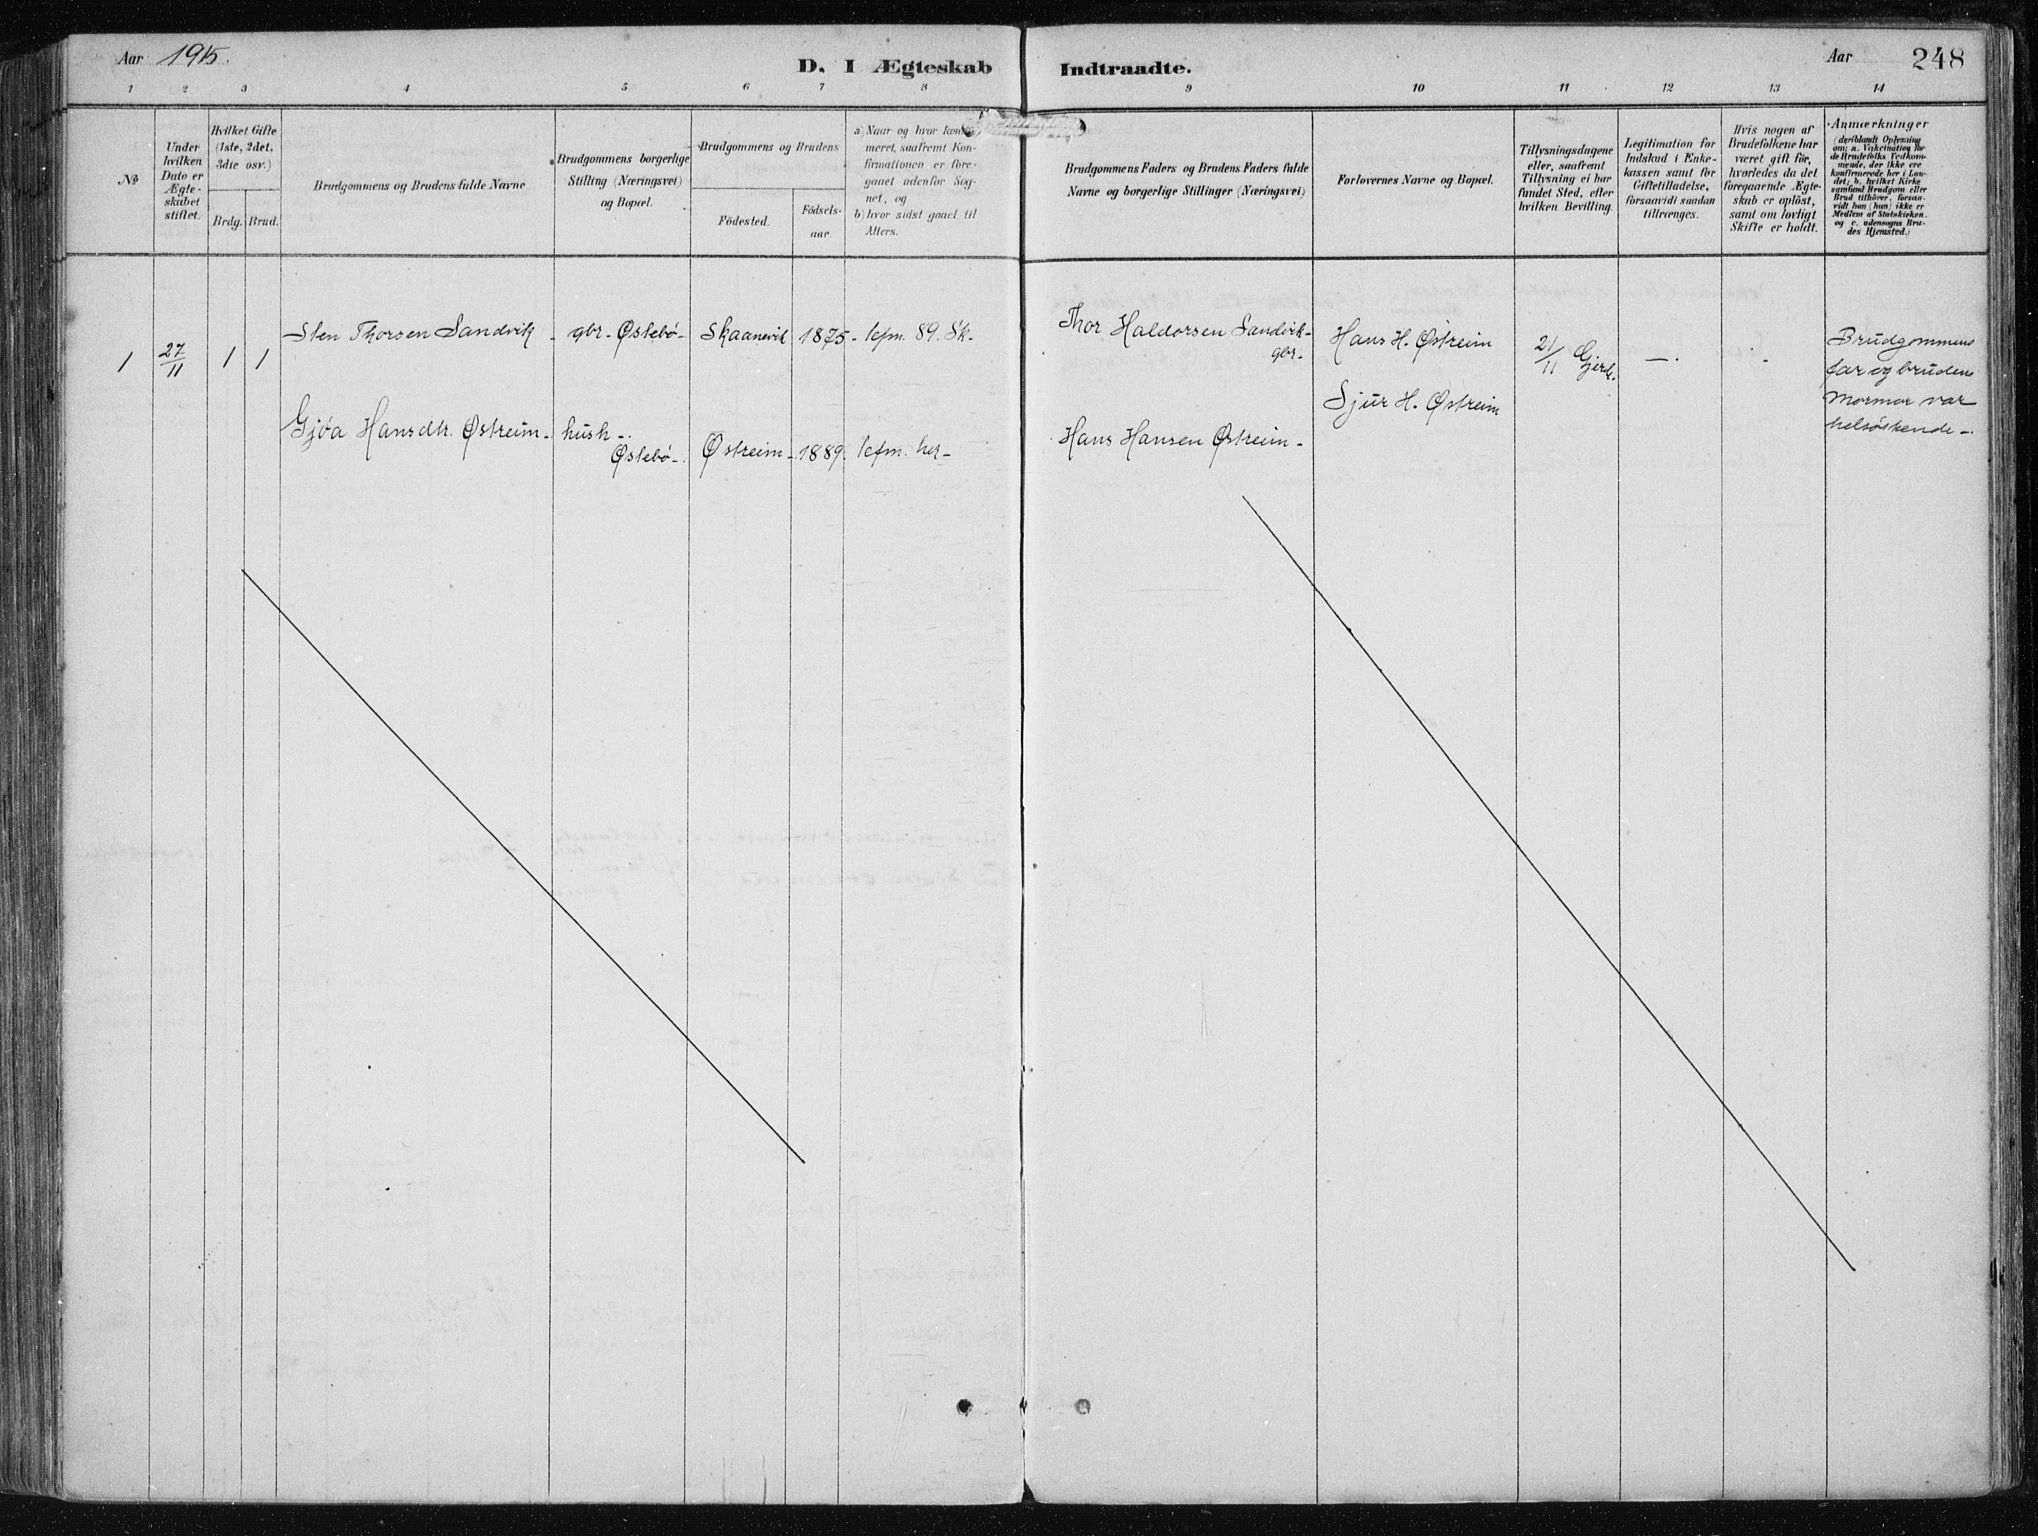 Aar 1915.
D. I Ægteskab Indtraadte.
Aar 248
1 2 3 4 5 6 7 8 9 10 11 12 13 14
No
Under hvilken Dato er Ægteskabet stiftet.
Hvilket Gifte (1ste, 2det, 3die osv.)
Brdg. Brud.
Brudgommens og Brudens fulde Navne
Brudgommens borgerlige Stilling (Næringsvei) og Bopæl.
Brudgommens og Brudens
Födested. Födsels-aar.
a) Naar og hvor konfirmeret, saafremt Konfirmationen er foregaaet udenfor Sognet, og
b) hvor sidst gaaet til Alters.
Brudgommens Faders og Brudens Faders fulde Navne og borgerlige Stillinger (Næringsvei)
Forlovernes Navne og Bopæl.
Tillysningsdagene eller, saafremt Tillysning ei har fundet Sted, efter hvilken Bevilling.
Legitimation for Indskud i Enkekassen samt for Giftetilladelse, forsaavidt saadan tiltrænges.
Hvis nogen af Brudefolkene har været gift før, hvorledes da det foregaaende Ægteskab er oplöst, samt om lovligt Skifte er holdt.
Anmærkninger
(deriblandt Oplysning om: a. Vakcination for de Brudefolks Vedkommende, der ikke ere konfirmerede her i Landet; b. hvilket Kirkesamfund Brudgom eller Brud tilhörer, forsaavidt han (hun) ikke er Medlem af Statskirken, og c. udensogns Brudes Hjemsted.)
1 27/11 1 1
Sten Thorsen Sandvik - gbr - Østebö - Skaanevik 1875 - kfm. 89. Sk -
Thor Haldorsen Sandvik - gbr -
Hans H. Østreim
21/11 Gjerde. - . -
Brudgommens
far og brudens
Mormor var
helsöskende -
Sjur H. Østreim
Gjöa Hansdtr. Østreim - hush - Østebö - Østreim - 1889. kfm. her -
Hans Hansen Østreim -